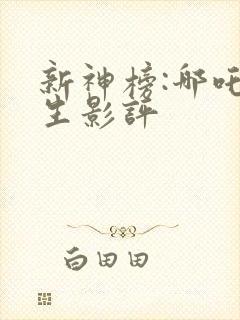 新神榜:哪吒
生影評
白田田